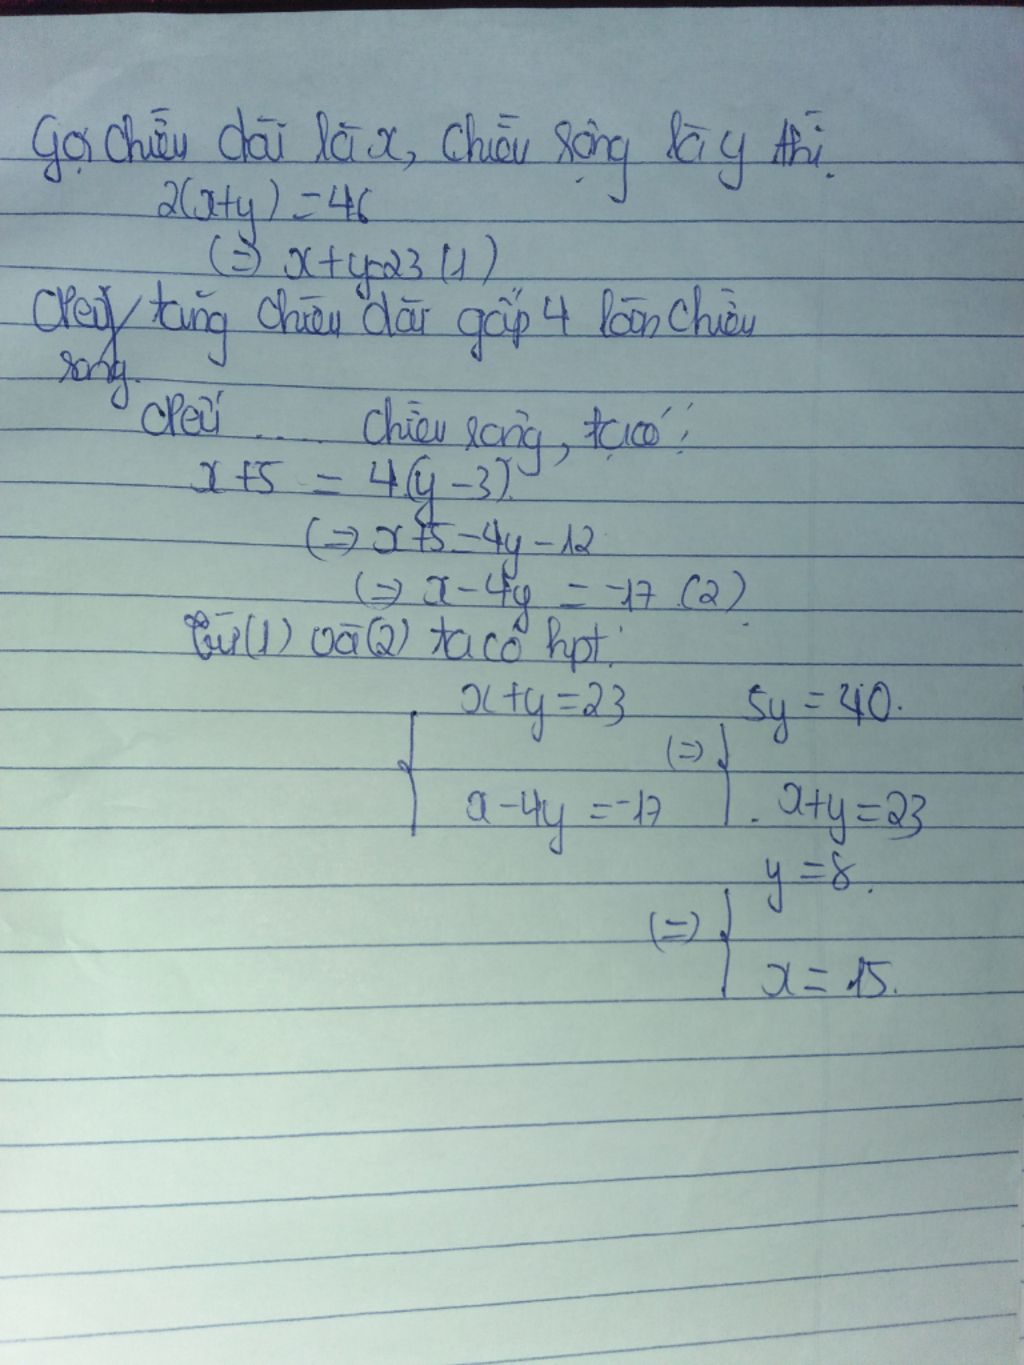 Gọi chiều dài là x, chiều rộng là y thì.
2(x+y) = 46
(=) x+y=23 (1)
Nếu tăng chiều dài gấp 4 lần chiều
rộng.
Nếu ..... chiều rộng, ta có:
x+5 = 4(y-3).
(=) x+5=4y-12
(=) x-4y = -17 (2).
Từ (1) và (2) ta có hpt:
x+y=23 5y=40.
(=)
x-4y=-17 x+y=23
y=8.
(=)
x=15.